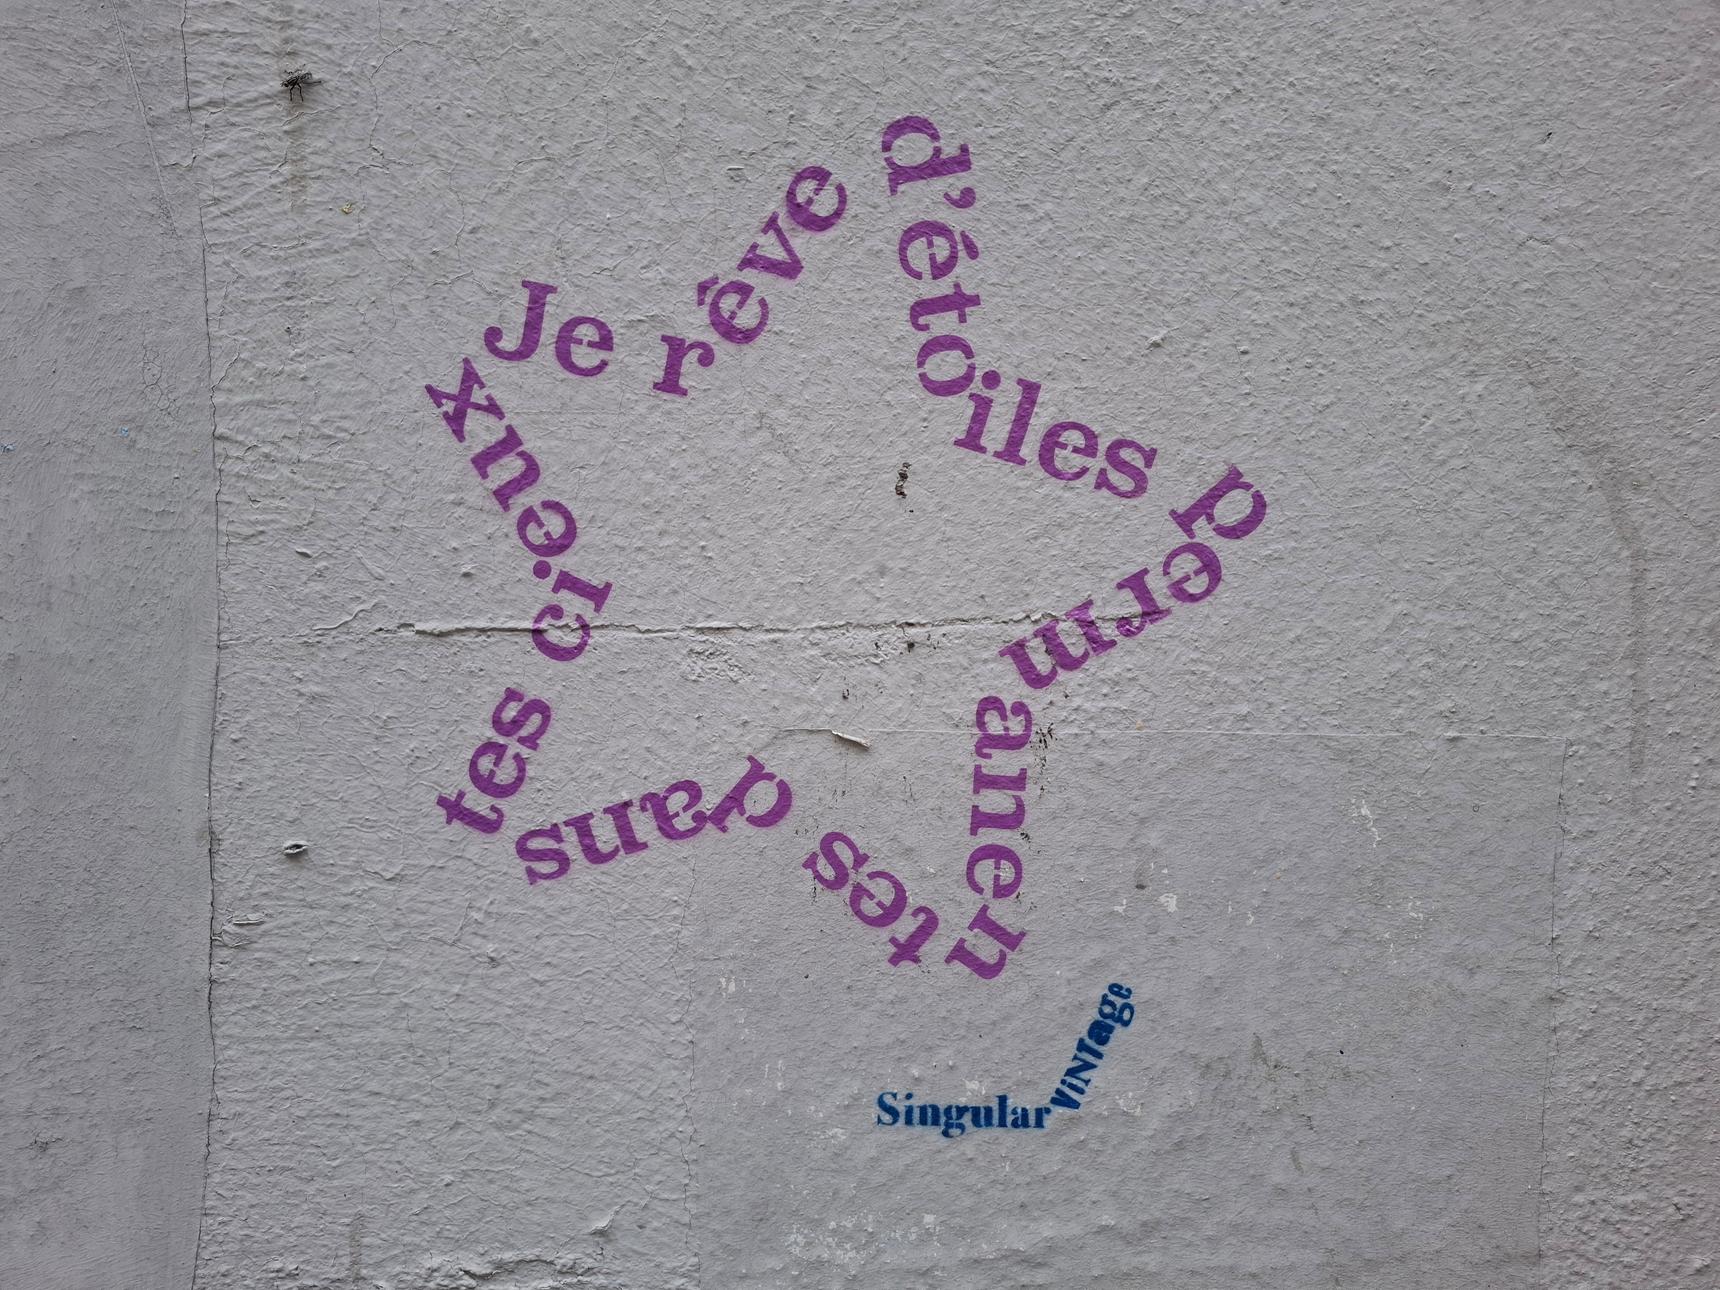 Je rêve d'étoiles permanentes dans tes cieux
Singular ViNTage